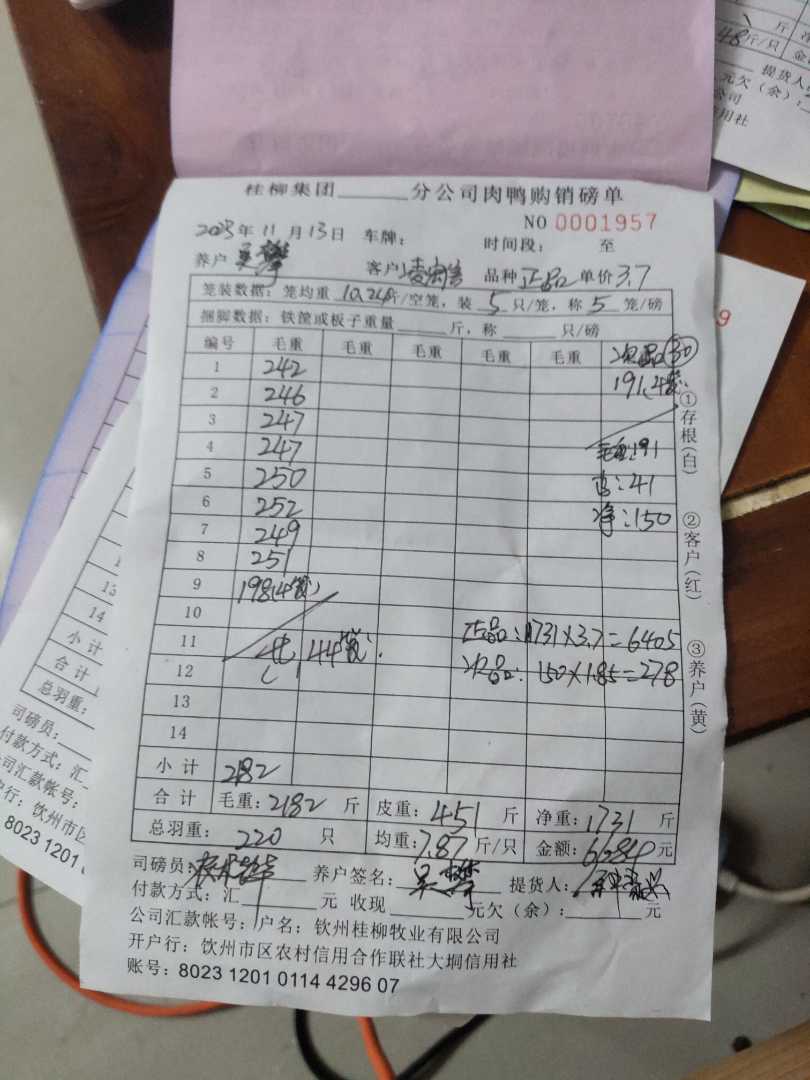 桂柳集团 分公司肉鸭购销磅单
NO 0001957
2023年11月13日 车牌: 时间段: 至
养户 吴攀 客户 品种 正品 单价 3.7
笼装数据: 笼均重 10.24斤/空笼, 装 5 只/笼, 称 5 笼/磅
捆脚数据: 铁筐或板子重量 斤, 称 只/磅
编号 毛重 毛重 毛重 毛重 毛重 次品(30)
1 242 191(4笼)
2 246
3 247
4 247 毛重:191
5 250 :41
6 252 净:150
7 249
8 251
9 198(4笼)
10 正品:1731×3.7=6405
11 共 44笼 次品:150×1.85=278
12
13
14
小计 2182
合计 毛重:2182 斤 皮重:451 斤 净重:1731 斤
总羽重: 220 只 均重:7.87斤/只 金额:6684元
司磅员: 养户签名: 吴攀 提货人:
付款方式: 汇 元 收现 元欠(余): 元
公司汇款帐号: 户名: 钦州桂柳牧业有限公司
开户行: 饮州市区农村信用合作联社大垌信用社
账号: 8023 1201 0114 4296 07
①存根(白)
②客户(红)
③养户(黄)
斤
48斤/只
提货人
元欠(余):
公司
信用社
9
13
14
小计
合计
总羽重:
司磅员:
付款方式: 汇
司汇款帐号:
户行: 饮州市区
8023 1201